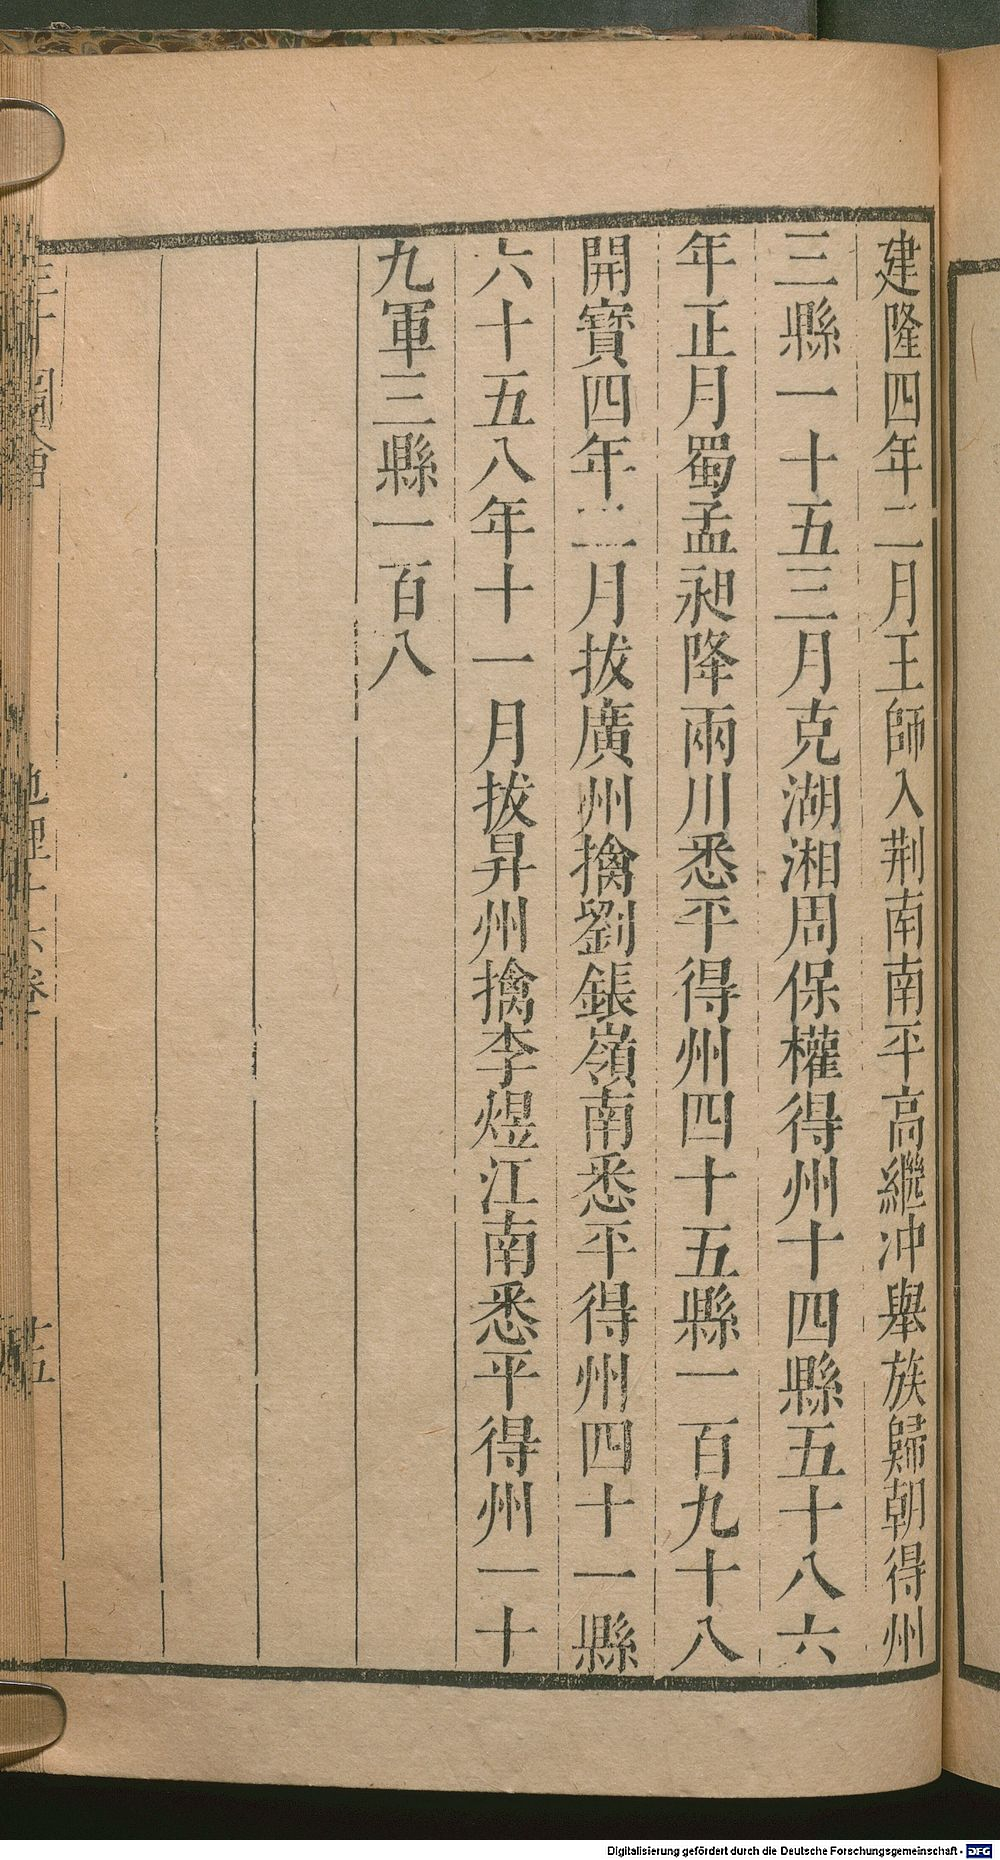 建隆四年二月王師入荆南南平高繼冲舉族歸朝得州
三縣一十五三月克湖湘周保權得州十四縣五十八六
年正月蜀孟昶降兩川悉平得州四十五縣一百九十八
開寶四年二月拔廣州擒劉鋹嶺南悉平得州四十一縣
六十五八年十一月拔昇州擒李煜江南悉平得州一十
九軍三縣一百八
圖會
地理十六卷
十五
Digitalisierung gefördert durch die Deutsche Forschungsgemeinschaft - DFG